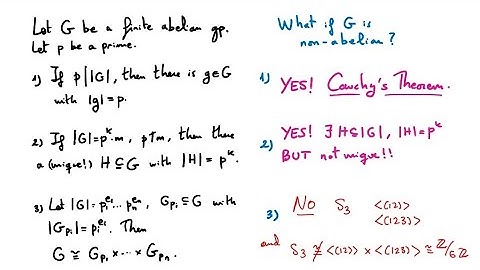 Let G be a finite abelian gp.
Let p be a prime.
1) If p | |G|, then there is g∈G
with |g|=p.
2) If |G|=pᵏ·m, p∤m, then there
a (unique!) H⊆G with |H|=pᵏ.
3) Let |G|=p₁^e₁ ... pₙ^eₙ, G_pᵢ⊆G with
|G_pᵢ|=pᵢ^eᵢ. Then
G≅G_p₁×...×G_pₙ.
What if G is
non-abelian?
1) YES! Cauchy's Theorem.
2) YES! ∃H⊆|G|, |H|=pᵏ
BUT not unique!!
3) No S₃ <(12)>
<(123)>
and S₃≇<(12)>×<(123)>≅ℤ/6ℤ